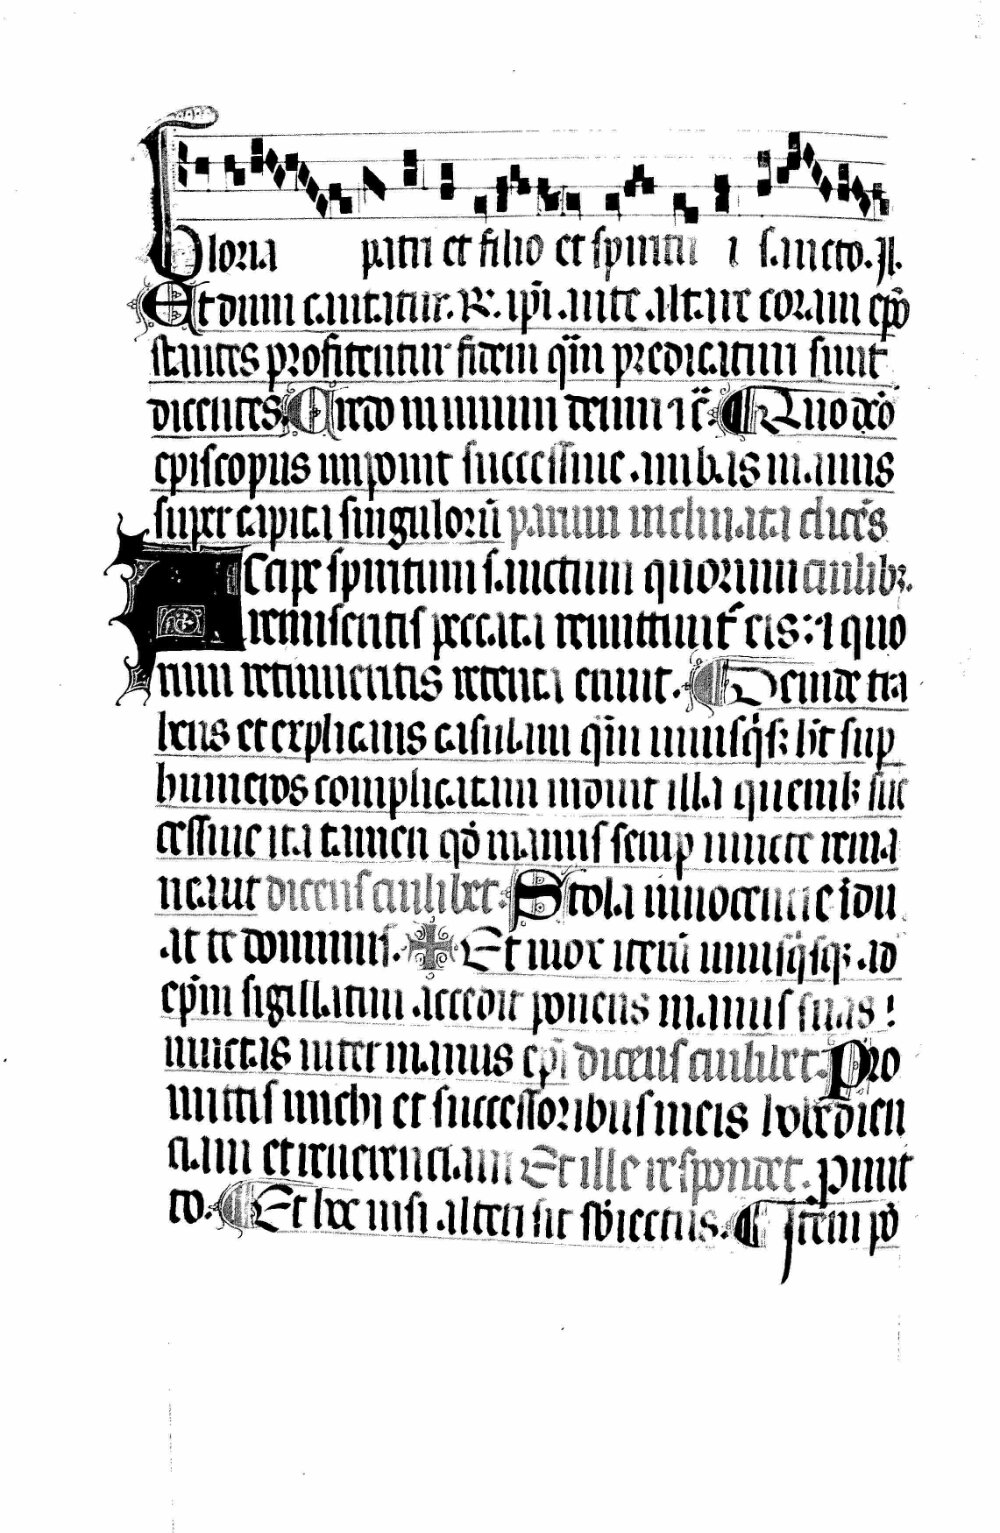 Gloria patri et filio et spiritu i sancto. ij.
Et dum cantatur. R. ip̄i ante altare coram ep̄o
stantes profitentur fidem qūm predicaturi sunt
dicentes. Credo in unum deum ⁊ c̄. Quo dc̄o
episcopus imponit successiue ambas manus
super capita singuloruȝ parum inclinata dicēs
Accipe spiritum sanctum quorum cuilibꝫ.
remiseritis peccata remittunt᷑ eis: ⁊ quo
rum retinueritis retenta erunt. Deinde tra
hens et explicans casulam qūm unusq̄sꝫ hēt sup̄
humeros complicatam induit illa quemlꝫ suc
cessiue ita tamen qd̄ manus semp̄ iuncte rema
neant dicens cuilibet. Stola innocentie īdu
at te dominus. Et mox iteruȝ unusq̄sqꝫ ad
ep̄m sigillatim accedit ponens manus suas
iunctas inter manus ep̄i dicens cuilibet. Pro
mittis michi et successoribus meis hobedien
ciam et reuerenciam Et ille respondet. Promit
to. Et hec nisi alteri sit sb̄iectus. Item pō